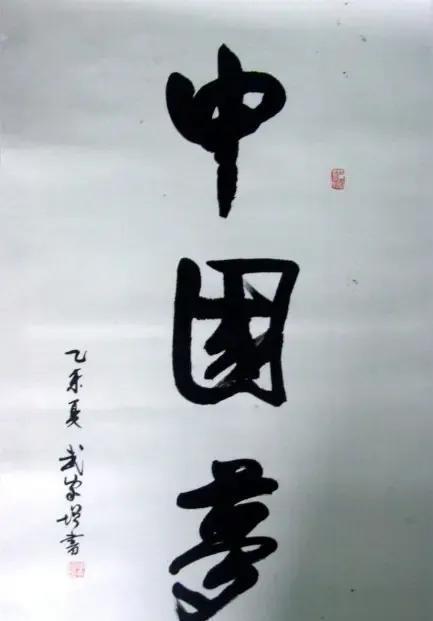 中國夢
乙未夏 武家增書